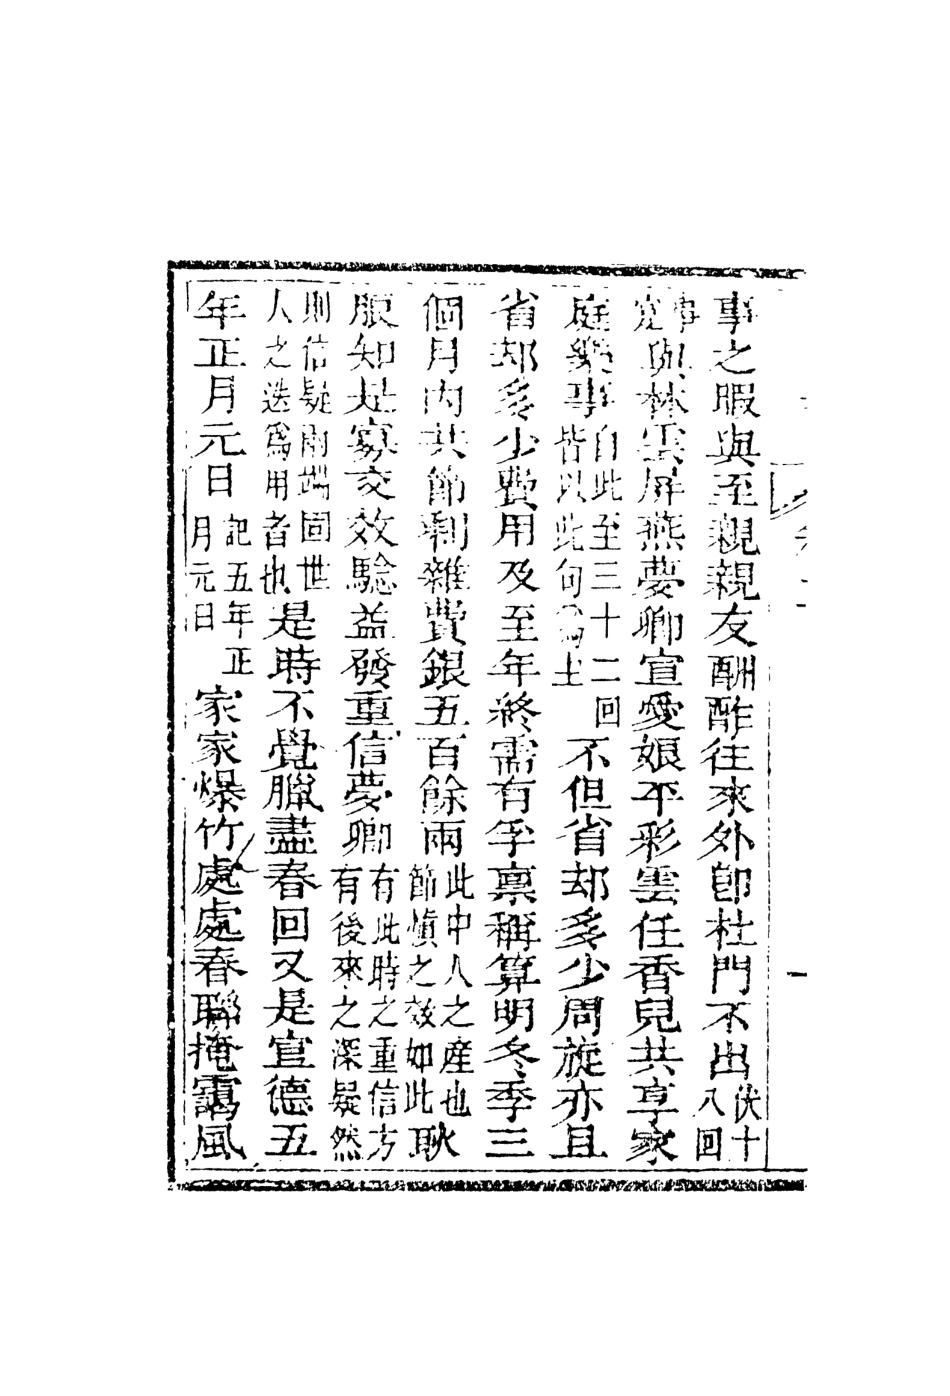 事之暇與至親親友酬酢往來外卽杜門不出伏十八回
事寃與林雲屏燕夢卿宣愛娘平彩雲任香兒共享家
庭樂事自此至三十二回皆以此句爲主不但省却多少周旋亦且
省却多少費用及至年終需有孚稟稱算明冬季三
個月內共節剩雜費銀五百餘兩此中人之產也節愼之效如此耿
服知是寡交效驗益發重信夢卿有此時之重信方有後來之深疑然
則信疑兩端固世人之迭爲用者也是時不覺臘盡春回又是宣德五
年正月元日記五年正月元日家家爆竹處處春聯掩靄風